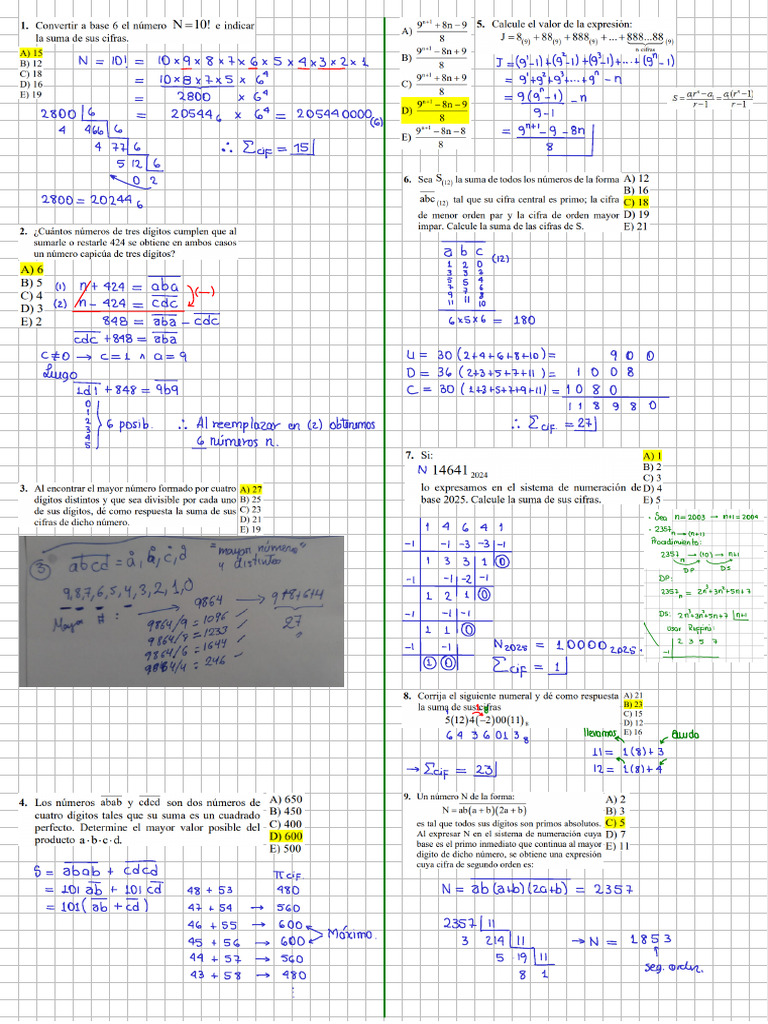 1. Convertir a base 6 el número N=10! e indicar
la suma de sus cifras.
A) 15
B) 12
C) 18
D) 16
E) 19
N = 10! = 10×9×8×7×6×5×4×3×2×1
= 10×8×7×5 × 6⁴
= 2800 × 6⁴
= 20544₆ × 6⁴ = 205440000₍₆₎
∴ Σcif = 15
2800 | 6
4 466 | 6
4 77 | 6
5 12 | 6
0 2
2800 = 20244₆
2. ¿Cuántos números de tres dígitos cumplen que al
sumarle o restarle 424 se obtiene en ambos casos
un número capicúa de tres dígitos?
A) 6
B) 5
C) 4
D) 3
E) 2
(1) n + 424 = aba
(2) n − 424 = cdc
(−)
848 = aba − cdc
cdc + 848 = aba
c≠0 → c=1 ∧ a=9
Luego
1d1 + 848 = 9b9
0
1
2
3
4
5
6 posib. ∴ Al reemplazar en (2) obtenemos
6 números n.
3. Al encontrar el mayor número formado por cuatro
dígitos distintos y que sea divisible por cada uno
de sus dígitos, dé como respuesta la suma de sus
cifras de dicho número.
A) 27
B) 25
C) 23
D) 21
E) 19
③ abcd = å, b̊, c̊, d̊
"mayor número"
y distintos
9,8,7,6,5,4,3,2,1,0
Mayor #:
9864 → 9+8+6+4
27
9864/9 = 1096
9864/8 = 1233
9864/6 = 1644
9864/4 = 246
4. Los números abab y cdcd son dos números de
cuatro dígitos tales que su suma es un cuadrado
perfecto. Determine el mayor valor posible del
producto a·b·c·d.
A) 650
B) 450
C) 400
D) 600
E) 500
S = abab + cdcd
= 101 ab + 101 cd
= 101(ab + cd)
π cif.
48 + 53 480
47 + 54 → 560
46 + 55 → 600
45 + 56 → 600
Máximo.
44 + 57 → 560
43 + 58 → 480
⋮
5. Calcule el valor de la expresión:
J = 8₍₉₎ + 88₍₉₎ + 888₍₉₎ + ... + 888...88₍₉₎
n cifras
A) (9ⁿ⁺¹ + 8n − 9)/8
B) (9ⁿ⁺¹ − 8n + 9)/8
C) (9ⁿ⁺¹ + 8n + 9)/8
D) (9ⁿ⁺¹ − 8n − 9)/8
E) (9ⁿ⁺¹ − 8n − 8)/8
J = (9¹−1)+(9²−1)+(9³−1)+...+(9ⁿ−1)
= 9¹+9²+9³+...+9ⁿ − n
= 9(9ⁿ−1)/(9−1) − n
= (9ⁿ⁺¹ − 9 − 8n)/8
S = (a₁rⁿ − a₁)/(r−1) = a₁(rⁿ−1)/(r−1)
6. Sea S₍₁₂₎ la suma de todos los números de la forma
abc₍₁₂₎ tal que su cifra central es primo; la cifra
de menor orden par y la cifra de orden mayor
impar. Calcule la suma de las cifras de S.
A) 12
B) 16
C) 18
D) 19
E) 21
a b c (12)
1 2 0
3 3 2
5 5 4
7 7 6
9 11 8
11 10
6×5×6 = 180
U = 30(2+4+6+8+10) = 9 0 0
D = 36(2+3+5+7+11) = 1 0 0 8
C = 30(1+3+5+7+9+11) = 1 0 8 0
1 1 8 9 8 0
∴ Σcif. = 27
7. Si:
N 14641₂₀₂₄
lo expresamos en el sistema de numeración de
base 2025. Calcule la suma de sus cifras.
A) 1
B) 2
C) 3
D) 4
E) 5
1 4 6 4 1
−1 −1 −3 −3 −1
1 3 3 1 0
−1 −1 −2 −1
1 2 1 0
−1 −1 −1
1 1 0
−1 −1
1 0
N₂₀₂₅ = 10000₂₀₂₅.
Σcif = 1
• Sea n=2003 → n+1=2004
• 2357ₙ → (n+1)
Procedimiento:
2357ₙ → (10) → n+1
DP DS
DP:
2357ₙ = 2n³+3n²+5n+7
DS: 2n³+3n²+5n+7 | n+1
Usar Ruffini:
2 3 5 7
−1
8. Corrija el siguiente numeral y dé como respuesta
la suma de sus cifras
A) 21
B) 23
C) 15
D) 12
E) 16
1 8
5(12)4(−2)00(11)₈
6 4 3 6 0 1 3 ₈
→ Σcif = 23
llevamos
queda
11 = 1(8)+3
12 = 1(8)+4
9. Un número N de la forma:
N = ab(a+b)(2a+b)
es tal que todos sus dígitos son primos absolutos.
Al expresar N en el sistema de numeración cuya
base es el primo inmediato que continua al mayor
dígito de dicho número, se obtiene una expresión
cuya cifra de segundo orden es:
A) 2
B) 3
C) 5
D) 7
E) 11
N = ab(a+b)(2a+b) = 2357
2357 | 11
3 214 | 11
5 19 | 11
8 1
→ N = 1853
seg. orden.